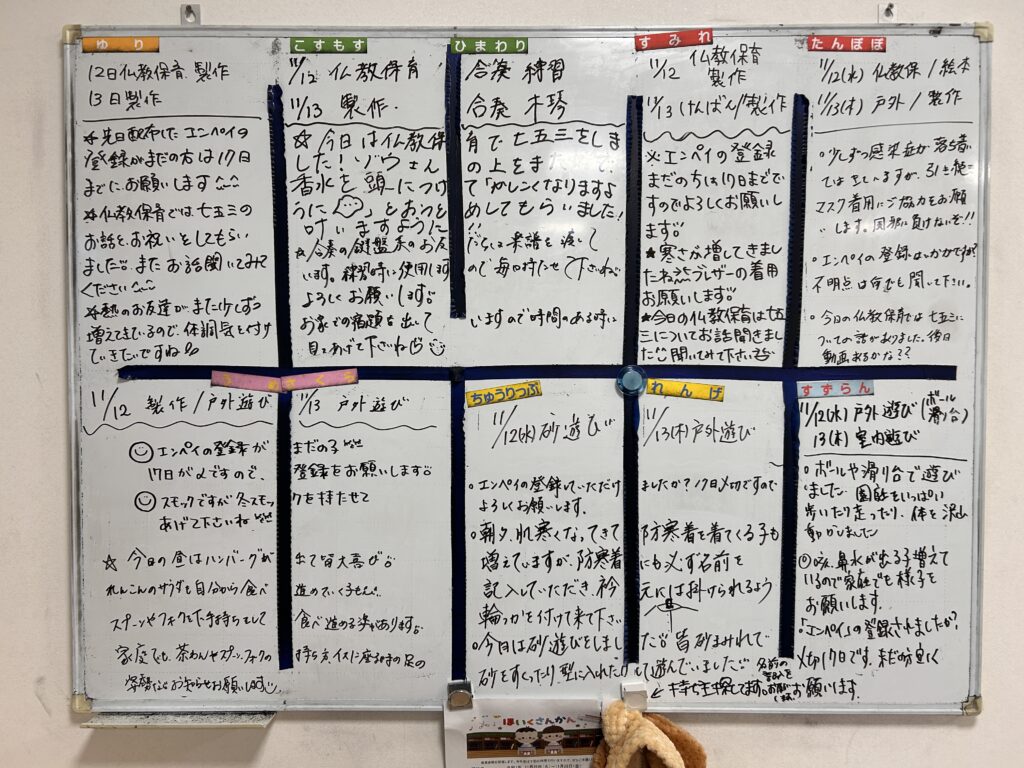 ゆり
12日仏教保育 製作
13日製作
☆先日配布したエンペイの
登録がまだの方は17日
までにお願いします
☆仏教保育では七五三の
お話と、お祝いをしてもらい
ました。またお話聞いてみて
ください
☆熱のお友達がまた少しずつ
増えてきているので体調気を付け
ていきたいですね
こすもす
11/12 仏教保育
11/13 製作
ひまわり
合奏 練習
合奏 木琴
☆今日は仏教保育で七五三をしま
した!ゾウさんの上をま
香水を頭につけて「かしこくなりますよ
うに」とおつとめしてもらいました!
叶いますように!!
☆合奏の鍵盤系のお友だちに楽譜を渡して
います。練習時に使用しますので毎日持たせて下さいね
よろしくお願いします。
お家での宿題を出していますので時間のある時に
見てあげて下さいね
すみれ
11/12 仏教保育
製作
11/13 けんばん/製作
※エンペイの登録
まだの方は17日までで
すのでよろしくお願いし
ます。
★寒さが増してきまし
たね。ブレザーの着用
お願いします。
★今日の仏教保育は七五
三についてお話聞きまし
た 聞いてみて下さいネ
たんぽぽ
11/12(水) 仏教保/絵本
11/13(木) 戸外/製作
○少しずつ感染症が落ち着い
てはきていますが、引き続き
マスク着用にご協力をお願い
します。風邪に負けないぞ!!
○エンペイの登録はいかがですか?
不明点は何でも聞いて下さい。
○今日の仏教保育では七五三に
ついての話がありました。後日
動画あるかな??
ふじ さくら
11/12 製作/戸外遊び
11/13 戸外遊び
エンペイの登録がまだの子
17日が〆ですので、登録をお願いします。
スモックですが冬スモックを持たせて
あげて下さいね
☆今日の昼はハンバーグが出て皆大喜び
れんこんのサラダも自分から食べ進めていく子も
スプーンやフォークを下手持ちをして食べ進める姿があります。
家庭でも、茶わんやスプーン、フォークの持ち方、イスに座る時の足の
姿勢などお知らせお願いします
ちゅうりっぷ
11/12(水) 砂遊び
れんげ
11/13(木) 戸外遊び
○エンペイの登録していただけましたか?17日〆切ですので
よろしくお願いします。
○朝夕、肌寒くなってきて防寒着を着てくる子も
増えていますが、防寒着にも必ず名前を
記入していただき、衿元には掛けられるよう
輪っかを付けて来て下さい
○今日は砂遊びをしました。皆砂まみれで
砂をすくったり型に入れたりして遊んでいました
← 持ち主探してます。名前の記入をお願いします
すずらん
11/12(水) 戸外遊び(ボール 滑り台)
13(木) 室内遊び
○ボールや滑り台で遊び
ました 園庭をいっぱい
歩いたり走ったり、体を沢山
動かしました
○咳、鼻水が出る子増えて
いるので家庭でも様子を
お願いします。
○「エンペイ」の登録されましたか?
〆切17日です。未だの方宜しく
お願います。
ほいくさんかん